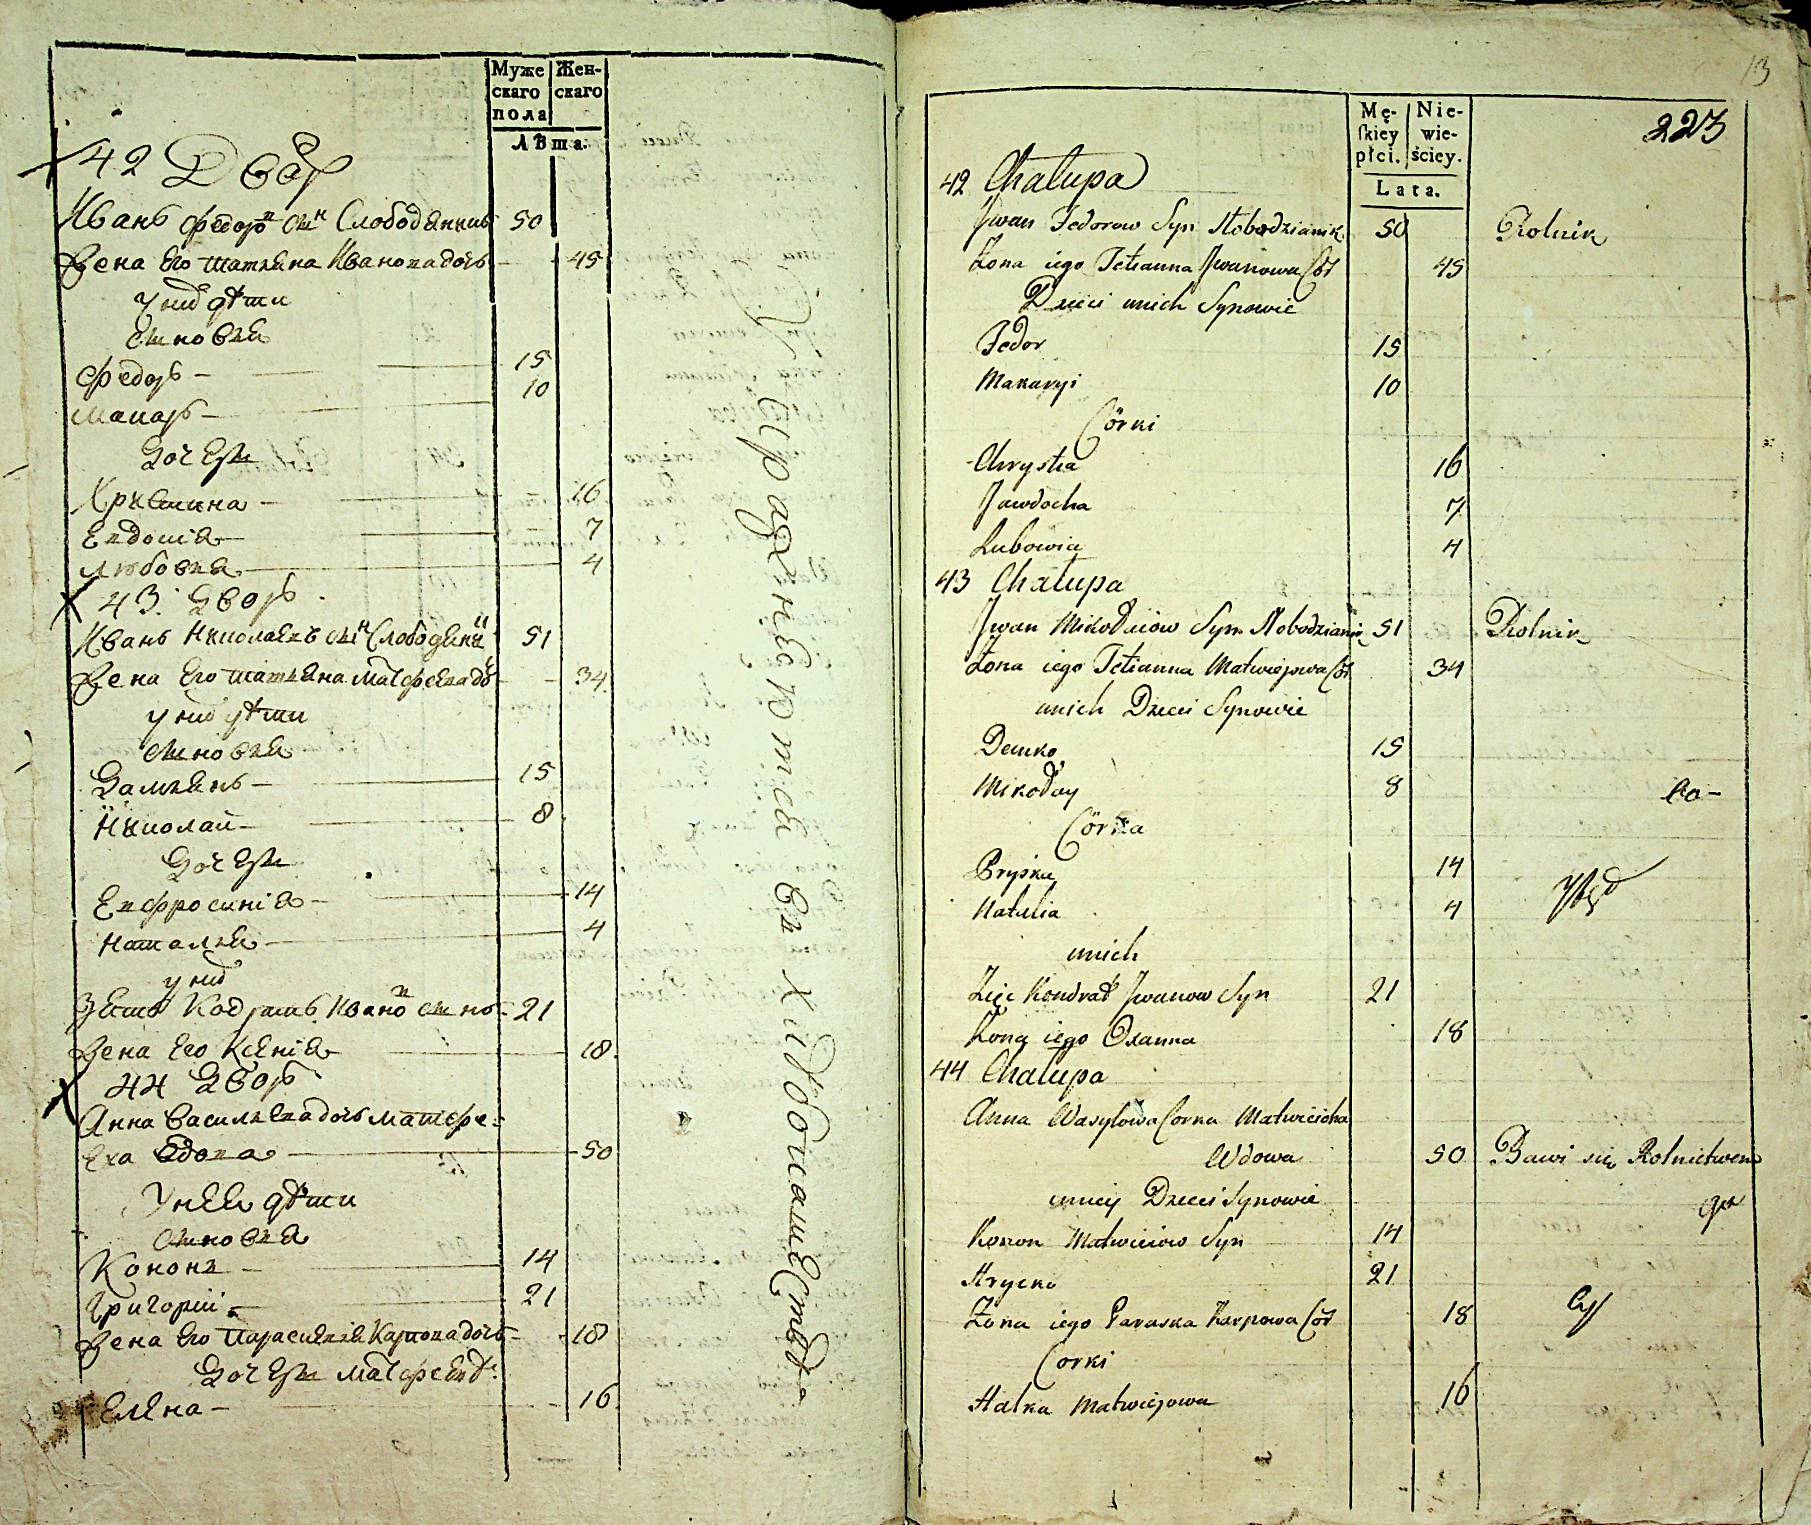 Муже
скаго
пола
Жен-
скаго
Лѣта.
42 Дворъ
Иванъ Федоровъ сынъ Слободяникъ 50
Жена Его Татьяна Иванова дочь 45
У нихъ дѣти
сыновья
Федоръ — 15
Макаръ — 10
Дочери
Христина — 16
Евдокія — 7
Любовья — 4
43. Дворъ
Иванъ Николаевъ сынъ Слободяникъ 51
Жена Его Татьяна Матфеева дочь 34
у нихъ дѣти
сыновья
Дамьянъ — 15
Николай — 8
Дочери
Евфросинія — 14
Наталья — 4
у нихъ
Зять Кодратъ Ивановъ сынъ 21
Жена Его Ксенія 18.
44 Дворъ
Анна Васильева дочь Матфе-
Еха вдова — 50
У неи дѣти
сыновья
Кононъ — 14
Григорій — 21
Жена Его Параскевья Карпова дочь 18
Дочери Матфеевы
Елена — 16
Упражняются въ хлѣбопашествѣ
13
223
Mę-
skiey
płci.
Nie-
wie-
ściey.
Lata.
42 Chałupa
Jwan Fedorow Syn Słobodzianik 50 Rolnik
Żona iego Tetianna Jwanowa Cór 45
Dzieci unich Synowie
Fedor 15
Makaryi 10
Córki
Chrystia 16
Jawdocha 7
Lubowia 4
43 Chałupa
Jwan Mikołaiow Syn Słobodzianik 51 Rolnik
Żona iego Tetianna Matwiejowa Cór 34
unich Dzieci Synowie
Demko 15
Mikołay 8
Córka
Pryska 14
Natalia 4
unich
Zięć Kondrat Jwanow Syn 21
Żona iego Oxanna 18
44 Chałupa
Anna Wasylowa Corka Matwieicha
Wdowa 50 Bawi się Rolnictwem
uniey Dzieci Synowie
Konon Matwieiow Syn 14
Hrycko 21
Żona iego Paraska Karpowa Cór 18
Corki
Halka Matwiejowa 16